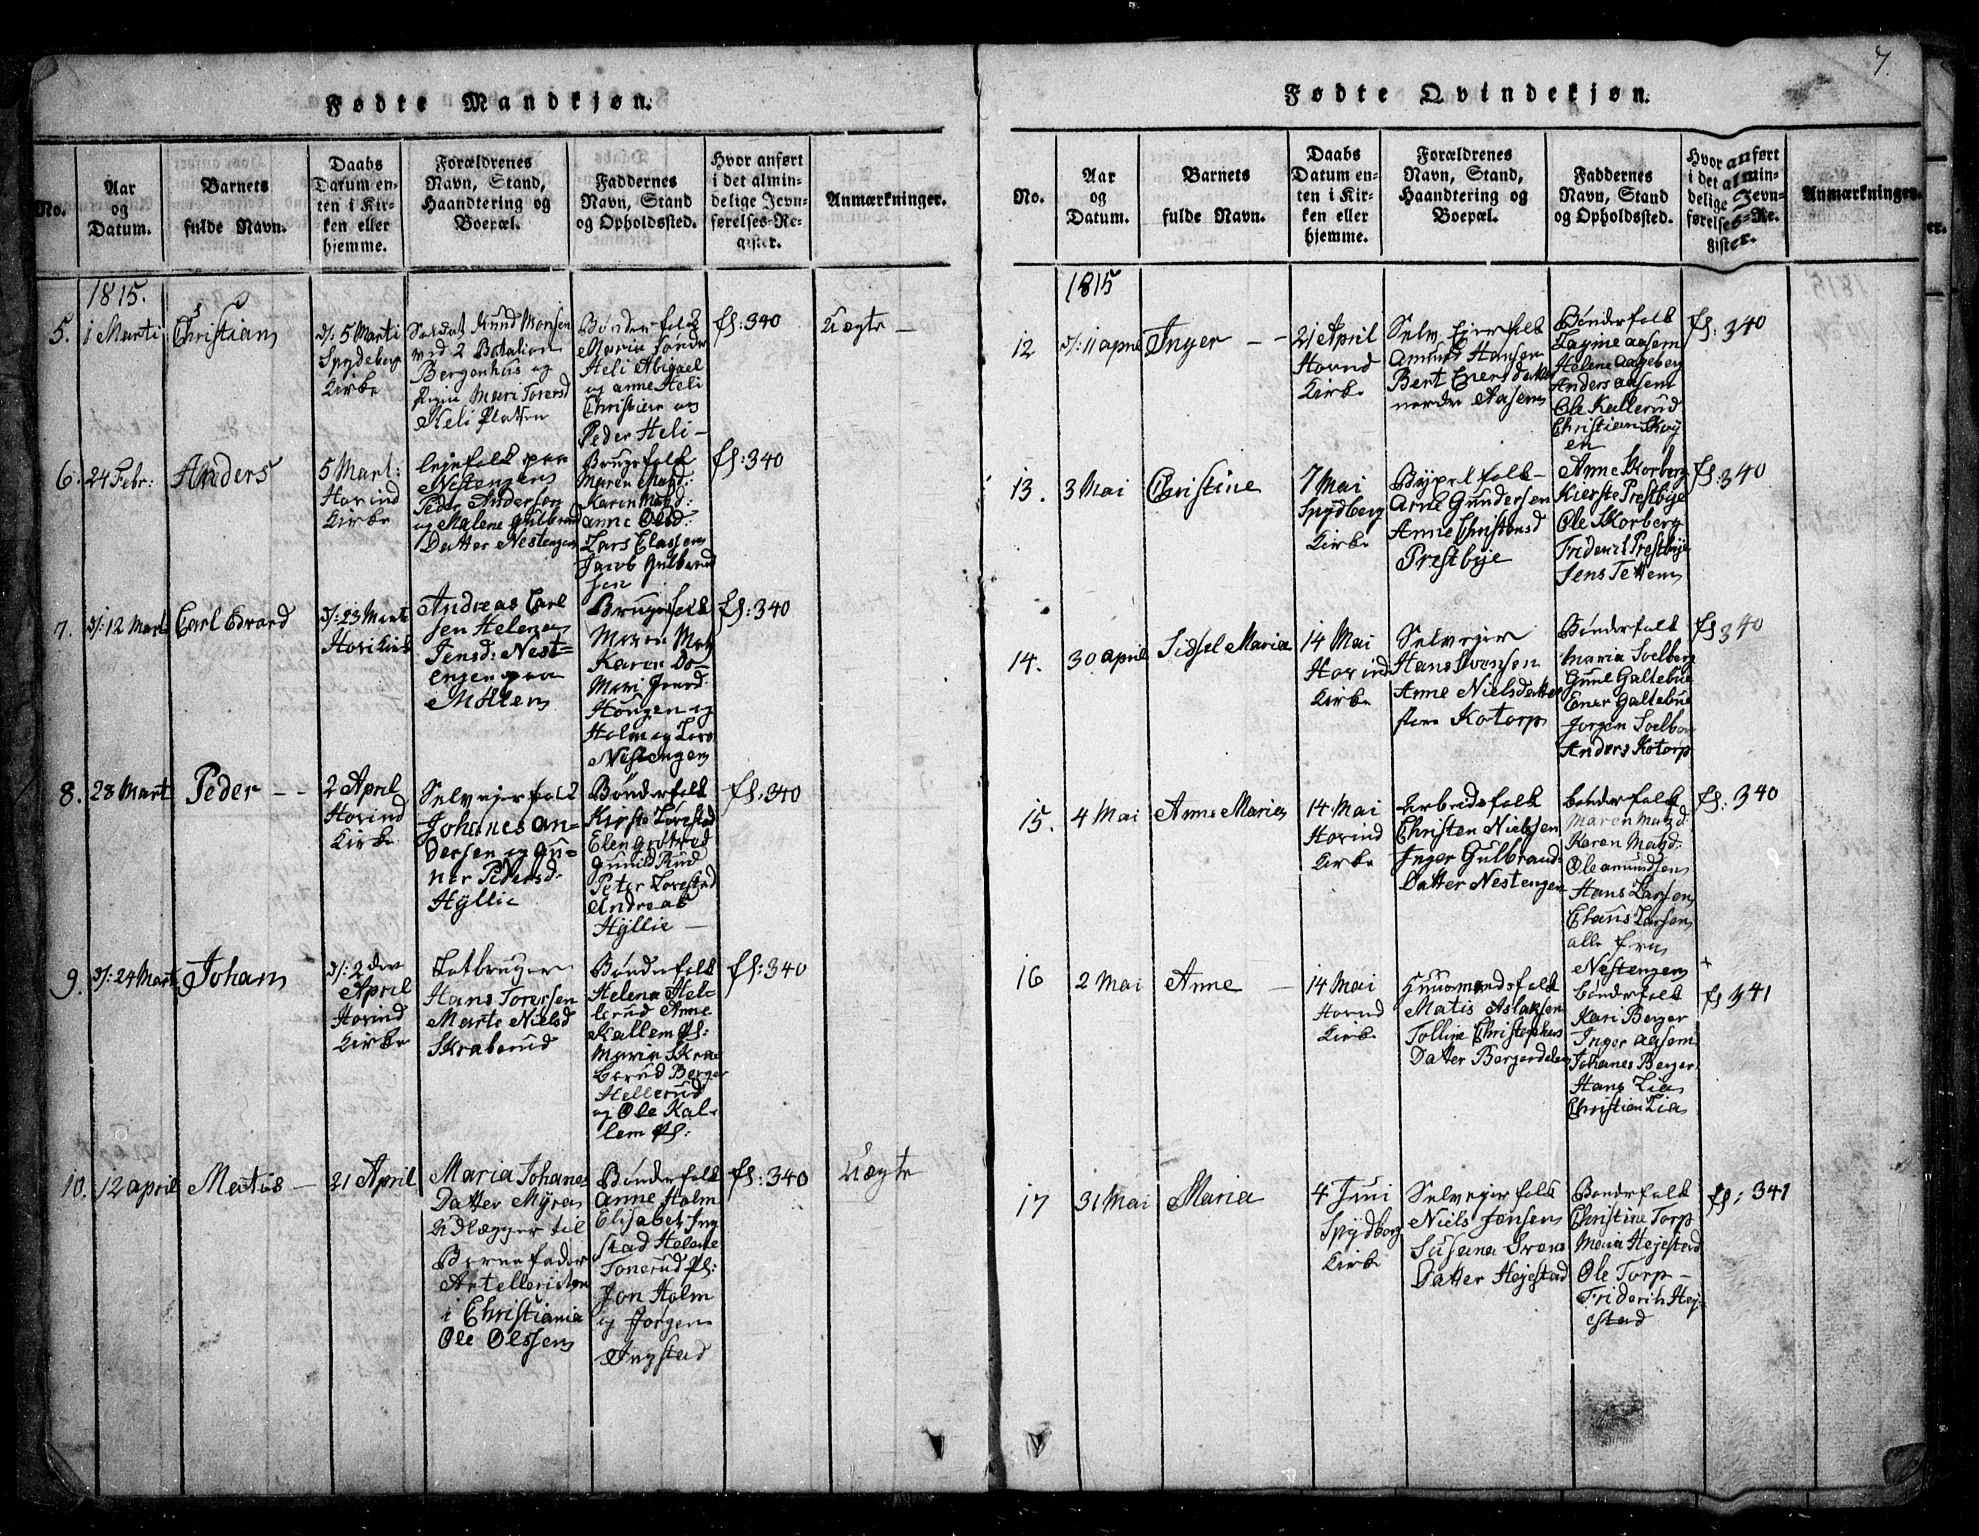 7.
Fødte Mandkjøn.
No.
Aar
og
Datum.
Barnets
fulde Navn.
Daabs
Datum en-
ten i Kir-
ken eller
hjemme.
Forældrenes
Navn, Stand,
Haandtering og
Boepæl.
Faddernes
Navn, Stand
og Opholdssted.
Hvor anført
i det almin-
delige Jevn-
førelses-Re-
gister.
Anmærkninger.
1815.
5.
1 Marti
Christian
d: 5 Marti
Spydeberg
Kirke
Soldat Knud Monsen
ved 2 Batalion
Bergenhus og
Mari Torersd
Heli Platsen
Bønderfolk
Maria søndr
Heli Abigael
og anne Heli
Christian og
Peder Heli -
fl: 340
Uægte -
6.
24 Febr:
Anders
5 Mart:
Hovind
Kirke
Lejefolk paa
Nestengen
Peder Anderson
og Malene Gulbrand
Datter Nestengen
Brugefolk
Maren Matsd:
Karen Matsd:
Anne Olsd:
Lars Classen
Jacob Gulbrand
sen
fl: 340
7.
d: 12 Mart
Carl Edvard
d: 23 Marti
Hovi Kirk
Andreas Carl
sen Helene
Jensd: Nest-
engen paa
Mollen
Brugefolk
Maren Mats
Karen Do-
Mari Jensd:
Hougen og
Holm og Lars
Nestengen
fl: 340
8.
28 Mart
Peder - -
2 April
Hovind
Kirke
Selvejerfolk
Johanes An-
dersen og Gu-
nor Pedersd.
Hyllie
Bønderfolk
Kirste Lørestad
Elen Grøtved
Gunild Rud
Peter Lørestad
Andreas
Hyllie -
fl: 340
9.
d: 24 Mart
Johan
d: 2 den
April
Hovind
Kirke
Lotbruger
Hans Torersen
Marte Nielsd
Skraberud
Bønderfolk
Helena Hel-
lerud Anne
Kallem pl:
Maria Skra
berud Berger
Hellerud
og Ole Kal-
lem pl:
fl: 340
10.
12 april
Matis -
21 April
Maria Johanes
Datter Myra
Udlægger til
Barnefader
Artelleristen
i Christiania
Ole Olssen
Bønderfolk
Anne Holm
Elisabet Ing
stad Helene
Tonerud pl:
Jon Holm
og Jørgen
Ingstad
fl: 340
Uægte
Fødte Qvindekjøn.
No.
Aar
og
Datum.
Barnets
fulde Navn.
Daabs
Datum en-
ten i Kir-
ken eller
hjemme.
Forældrenes
Navn, Stand,
Haandtering og
Boepæl.
Faddernes
Navn, Stand
og Opholdssted.
Hvor anført
i det almin-
delige Jevn-
førelses-Re-
gister.
Anmærkninger.
1815
12
d: 11 april
Inger - -
21 April
Hovind
Kirke
Selv Ejerfolk
Amund Hansen
Bert Enersdatter
nordre Aasen
Bønderfolk
Helene Aageberg
Anders aasen
Ole Kallerud
Christian Skoy
en
fl: 340
13.
3 Mai
Christine
7 Mai
Spydberg
Kirke
Bygselfolk -
Arne Gundersen
Anne Christensd
Prestbye
Anne Skorberg
Kierste Prestbye
Ole Skorberg
Friderik Prestbye
Jens Tetten
fl: 340
14.
30 april
Sidsel Maria
14 Mai
Hovind
Kirke
Selvejer
Hans Svensen
Anne Nielsdatter
Kotorp
Bønderfolk
Maria Solberg
Gunil Galtebue
Ener Galtebue
Jorgen Solber
Anders Kotorp
fl 340
15.
4 Mai
Anne Maria
14 Mai
Hovind
Kirke
Arbeidsfolk
Christen Nielssen
Inger Gulbrand:
Datter Nestengen
Bønderfolk
Maren Matsd
Karen Matsd:
Ole amundsen
Hans Larsen
Claus Larsen
alle fra
Nestengen
fl: 340
16
2 Mai
Anne -
14 Mai
Hovind
Kirke
Huusmandsfolk
Matis Aslaksen
Tolline Christophers
Datter Bergerdelen
Bønderfolk
Kari Berger
Inger aasen
Johanes Berger
Hans Lia
Christian Lia
+
fl 341
17
31 Mai
Maria
4 Juni
Spydberg
Kirke
Selvejerfolk
Niels Jensen
Susana Svens
Datter Hejestad
Bønderfolk
Christine Torp
Maria Hejestad
Ole Torp -
Friderik Hej-
estad
fl: 341